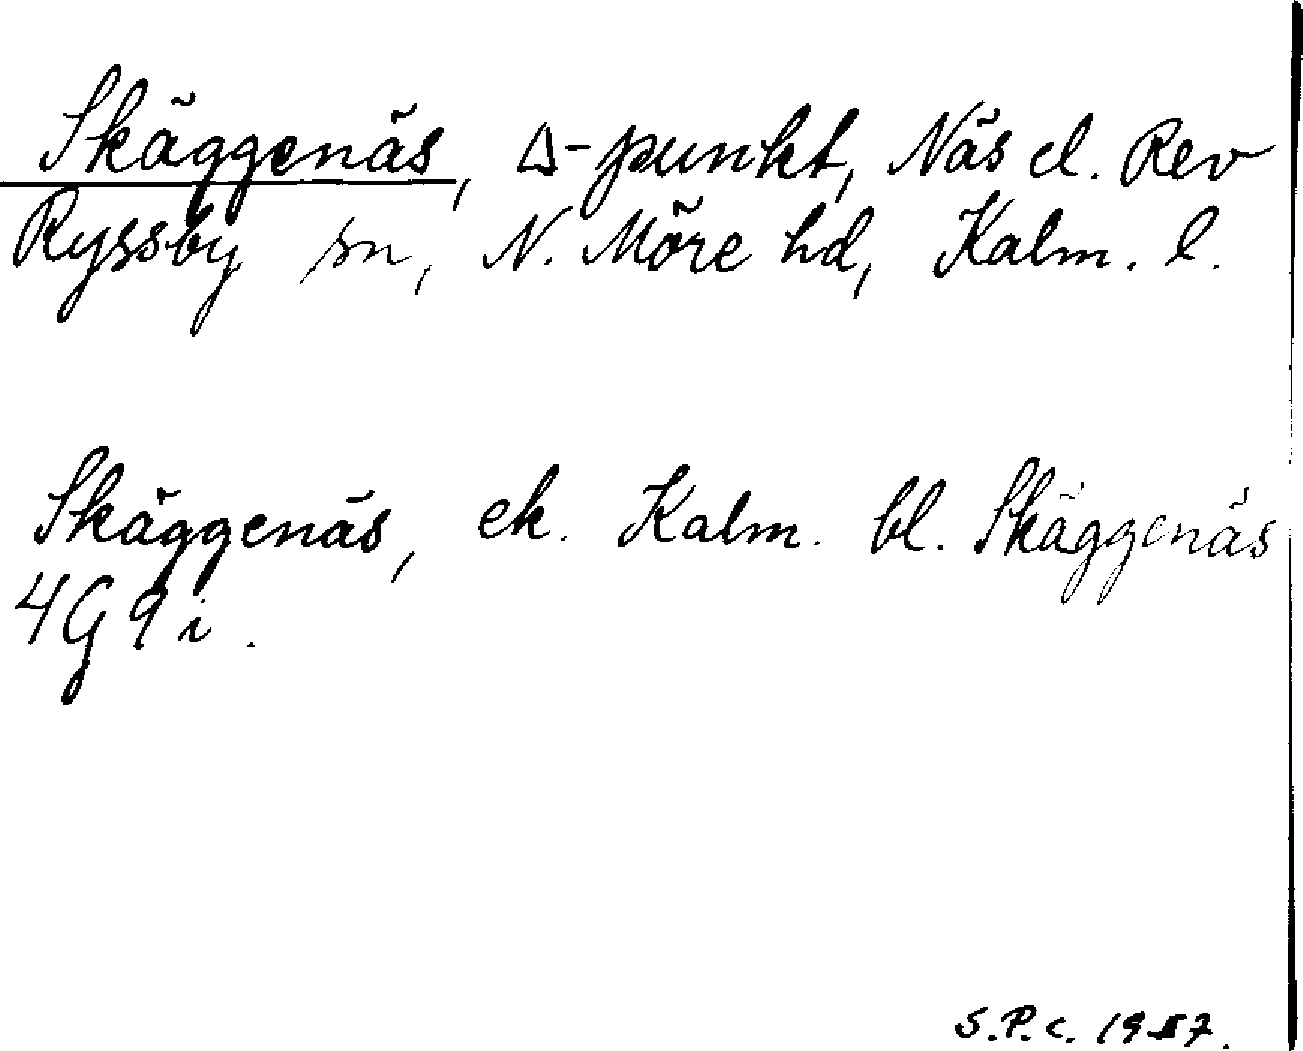 Skäggenäs, Δ-punkt, Näs el. Rev
Ryssby sn, N. Möre hd, Kalm. l.
Skäggenäs, ek. Kalm. bl. Skäggenäs
4G9i.
S.P.C.